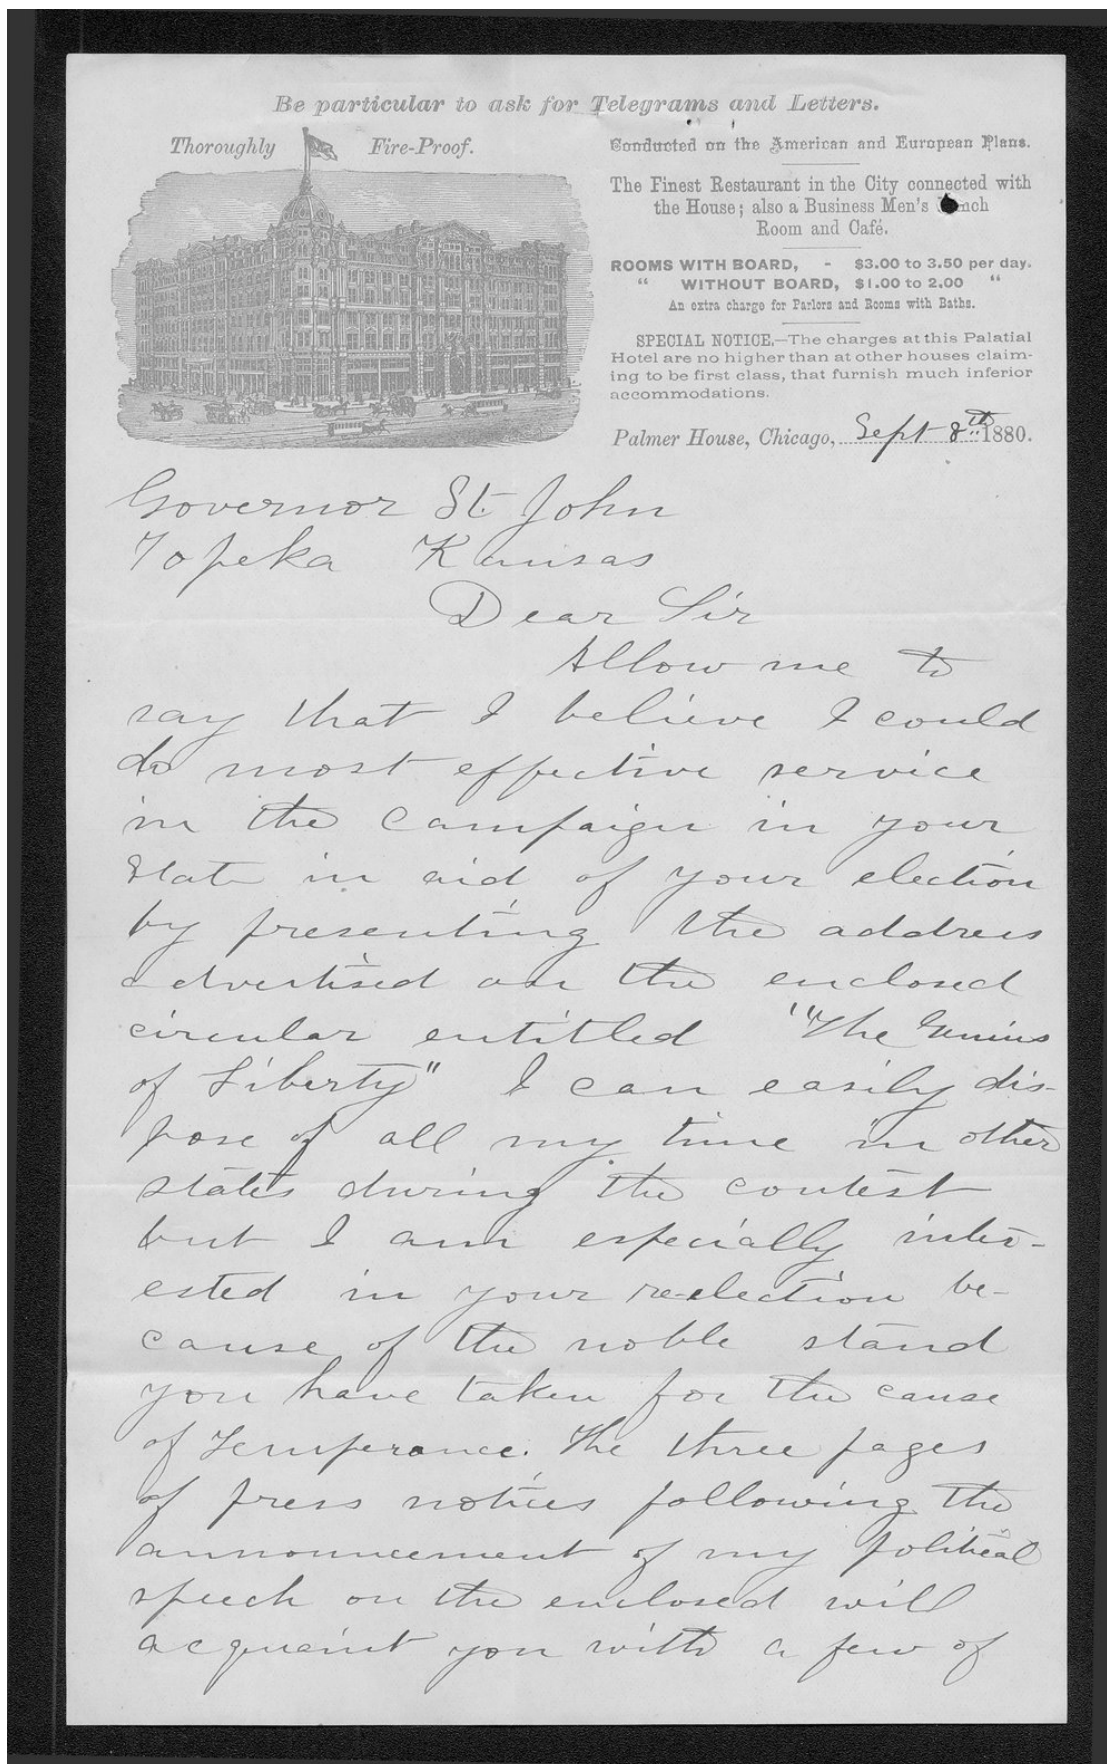 Be particular to ask for Telegrams and Letters.
Thoroughly Fire-Proof.
Conducted on the American and European Plans.
The Finest Restaurant in the City connected with
the House; also a Business Men's
Room and Café.
ROOMS WITH BOARD, - $3.00 to 3.50 per day.
" WITHOUT BOARD, $1.00 to 2.00 "
An extra charge for Parlors and Rooms with Baths.
SPECIAL NOTICE.—The charges at this Palatial
Hotel are no higher than at other houses claim-
ing to be first class, that furnish much inferior
accommodations.
Palmer House, Chicago, Sept 8th 1880.
Governor St. John
Topeka Kansas
Dear Sir
Allow me to
say that I believe I could
do most effective service
in the campaign in your
State in aid of your election
by presenting the address
advertised on the enclosed
circular entitled "The Genius
of Liberty" I can easily dis-
pose of all my time in other
states during the contest
but I am especially inter-
ested in your re-election be-
cause of the noble stand
you have taken for the cause
of Temperance. The three pages
of press notices following the
announcement of my political
speech on the enclosed will
acquaint you with a few of